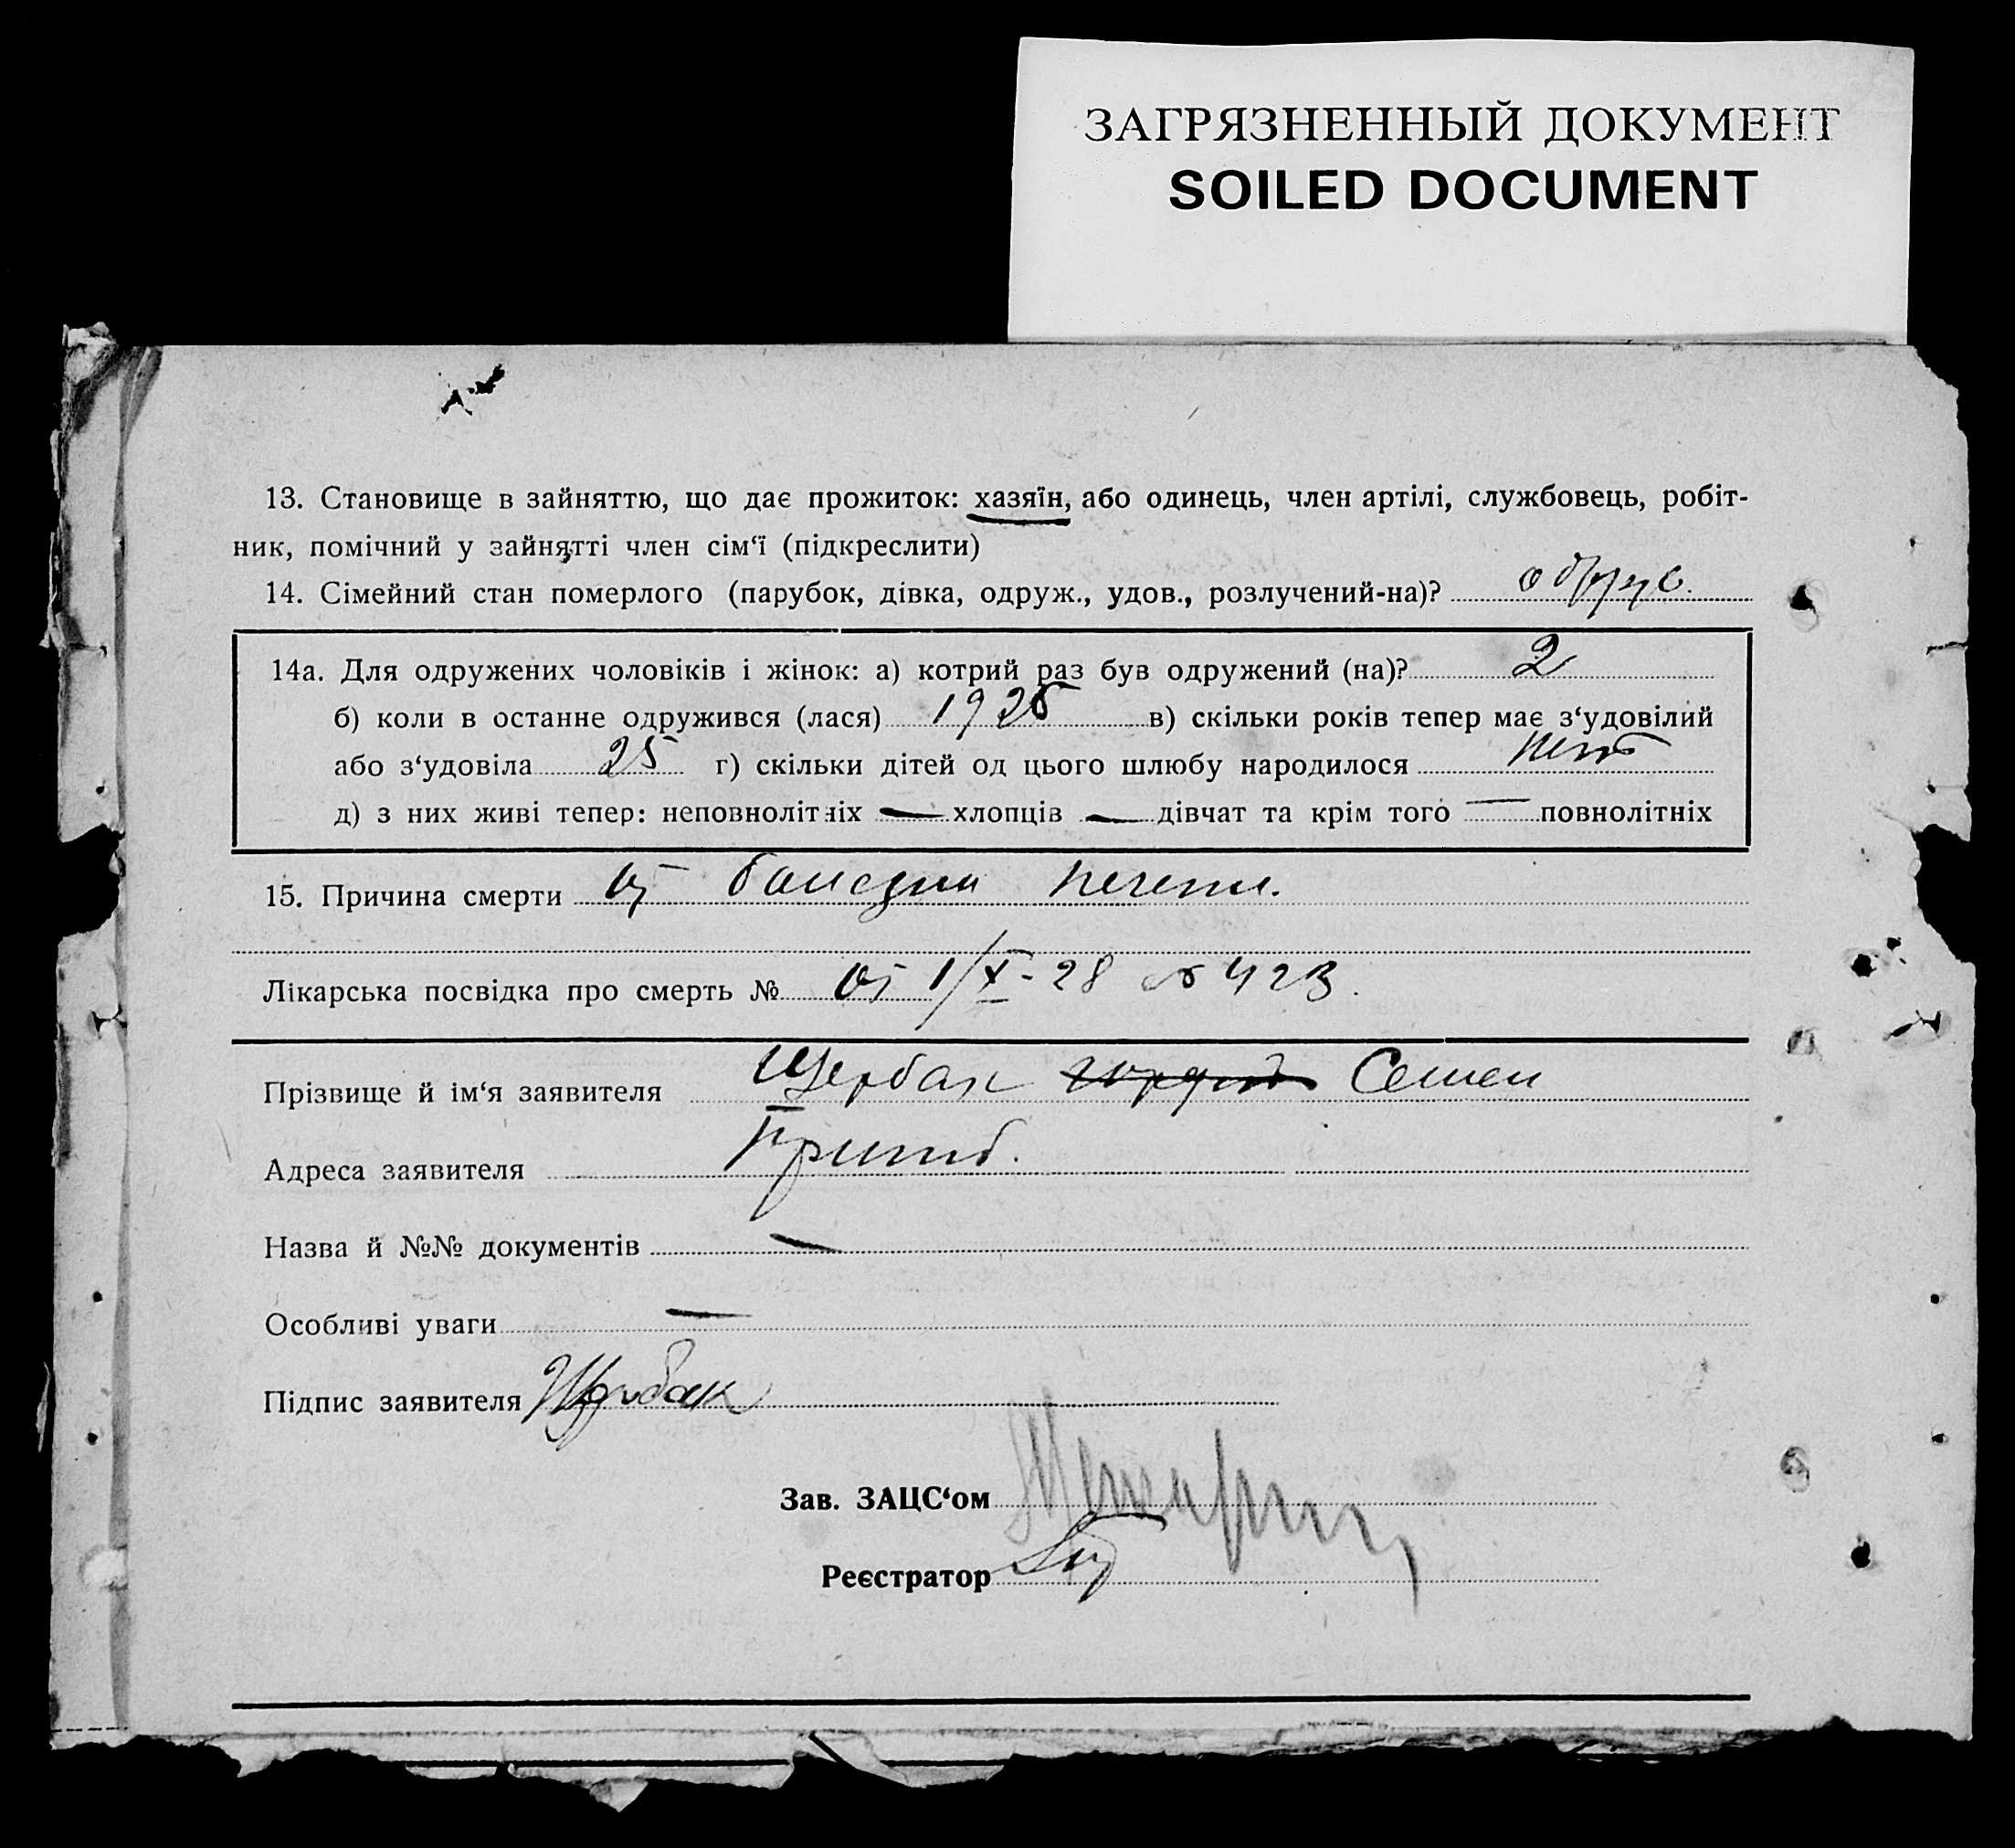 ЗАГРЯЗНЕННЫЙ ДОКУМЕНТ
SOILED DOCUMENT
13. Становище в зайняттю, що дає прожиток: хазяїн, або одинець, член артілі, службовець, робіт-
ник, помічний у зайнятті член сім‘ї (підкреслити)
14. Сімейний стан померлого (парубок, дівка, одруж., удов., розлучений-на)?
14а. Для одружених чоловіків і жінок: а) котрий раз був одружений (на)? 2
б) коли в останне одружився (лася) 1926 в) скільки років тепер має з‘удовілий
або з‘удовіла 25 г) скільки дітей од цього шлюбу народилося
д) з них живі тепер: неповнолітніх — хлопців — дівчат та крім того — повнолітніх
15. Причина смерти от болезни печени.
Лікарська посвідка про смерть № от 1/X-28 № 423.
Прізвище й ім‘я заявителя Щербак Семен
Адреса заявителя
Назва й №№ документів —
Особливі уваги —
Підпис заявителя Щербак
Зав. ЗАЦС‘ом
Реєстратор